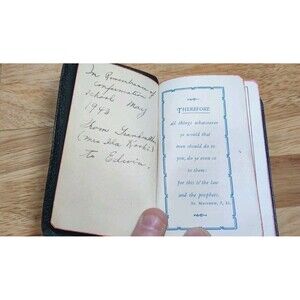 In Remembrance of
Confirmation
School May
1943
from Grandma
(Mrs Ida
to Edwin.
THEREFORE
all things whatsoever
ye would that
men should do to
you, do ye even so
to them:
for this is the law
and the prophets.
ST. MATTHEW, 7, 12.